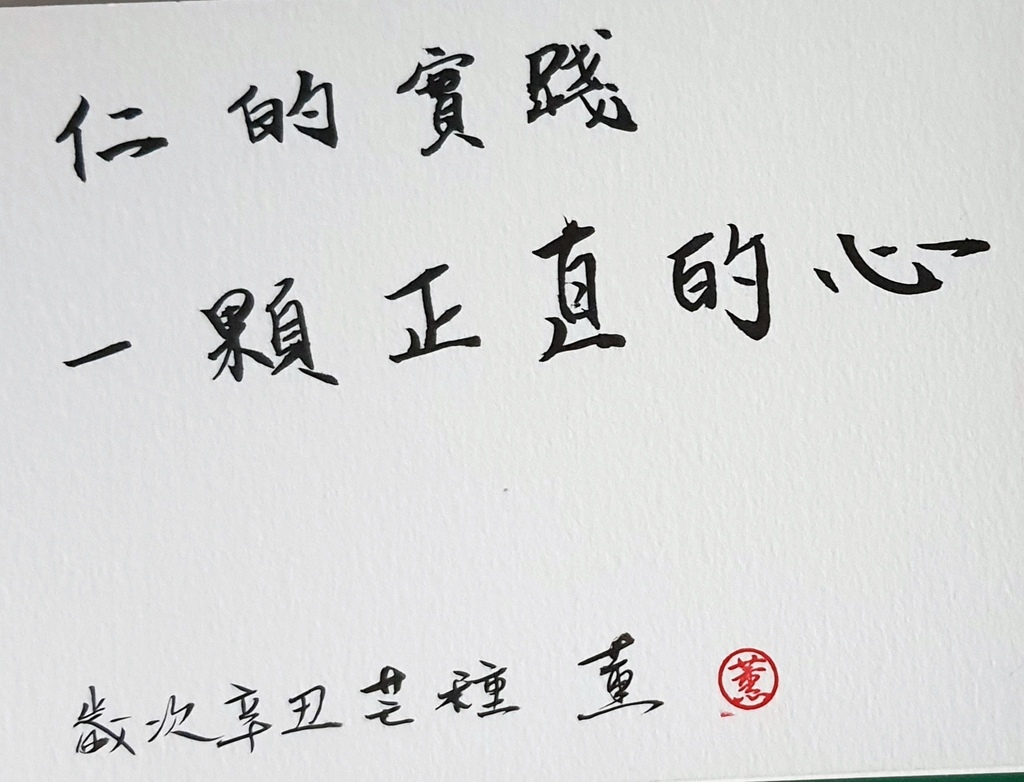 仁的實踐
一顆正直的心
歲次辛丑芒種 薫 蕙